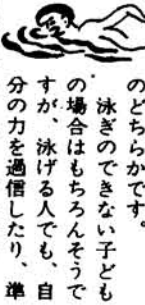 のどちらかです。
泳ぎのできない子ども
の場合はもちろんそうで
すが、泳げる人でも、自
分の力を過信したり、準